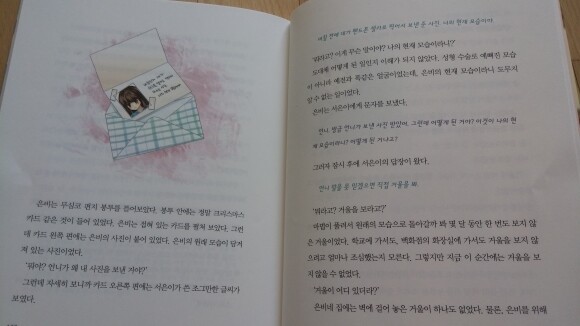 은비는 무심코 편지 봉투를 뜯어보았다. 봉투 안에는 정말 크리스마스
카드 같은 것이 들어 있었다. 은비는 접혀 있는 카드를 펼쳐 보았다. 그런
데 카드 왼쪽 편에는 은비의 사진이 붙어 있었다. 은비의 원래 모습이 담겨
져 있는 사진이었다.
'뭐야? 언니가 왜 내 사진을 보낸 거야?'
그런데 자세히 보니까 카드 오른쪽 편에는 서은이가 쓴 조그만한 글씨가
보였다.
며칠 전에 내가 핸드폰 몰래 찍어서 보낸 사진. 너의 현재 모습이야
'뭐라고? 이게 무슨 말이야? 나의 현재 모습이라니?'
도대체 어떻게 된 일인지 이해가 되지 않았다. 성형 수술로 예뻐진 모습
이 아니라 예전과 똑같은 얼굴이었는데, 은비의 현재 모습이라니 도무지
알 수 없는 일이었다.
은비는 서은이에게 문자를 보냈다.
언니, 방금 언니가 보낸 사진 받았어. 그런데 어떻게 된 거야? 이것이 나의 현
재 모습이라니? 어떻게 된 거냐고?
그러자 잠시 후에 서은이의 답장이 왔다.
언니 말을 못 믿겠으면 직접 거울을 봐.
'뭐라고? 거울을 보라고?'
마법이 풀려서 원래의 모습으로 돌아갈까 봐 몇 달 동안 한 번도 보지 않
은 거울이었다. 학교에 가서도, 백화점의 화장실에 가서도 거울을 보지 않
으려고 얼마나 조심했는지 모른다. 그렇지만 지금 이 순간에는 거울을 보
지 않을 수 없었다.
'거울이 어디 있더라?'
은비네 집에는 벽에 걸어 놓은 거울이 하나도 없었다. 물론, 은비를 위해